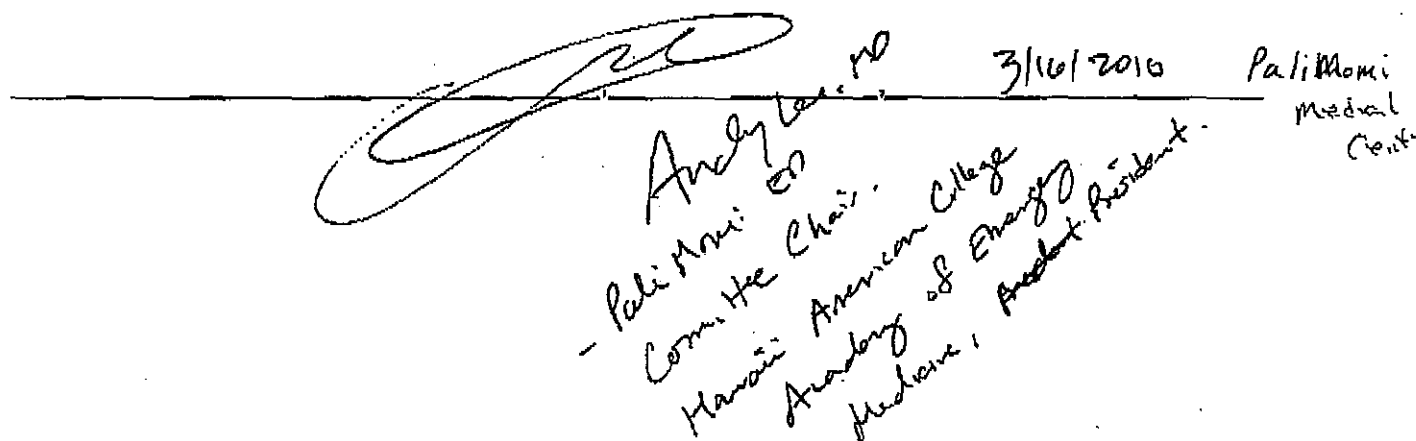 3/16/2010 Pali Momi
Medical
Andy MD
- Pali Momi ED
Committee Chair.
Hawaii American College
Academy of Emergency
Medicine, President.